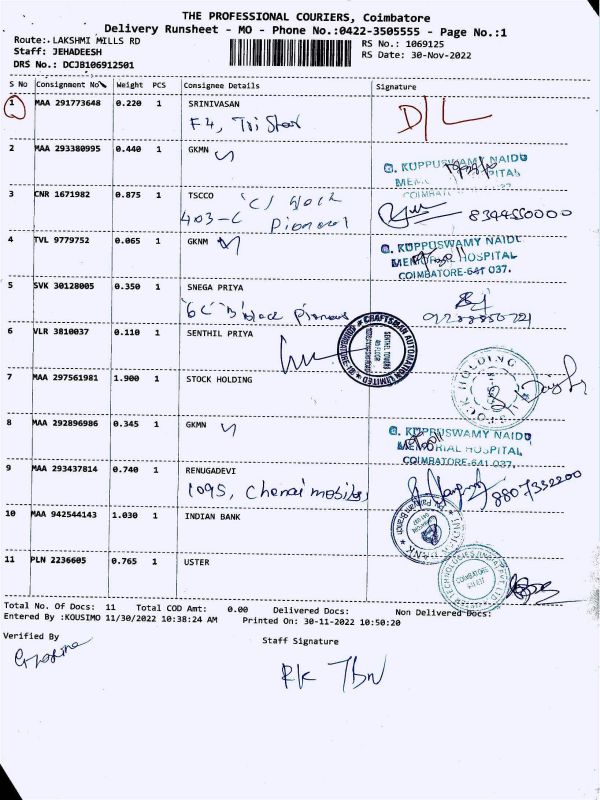 THE PROFESSIONAL COURIERS, Coimbatore
Delivery Runsheet - MO - Phone No.:0422-3505555 - Page No.:1
Route:- LAKSHMI MILLS RD
RS No.: 1069125
Staff: JEHADEESH
RS Date: 30-Nov-2022
DRS No.: DCJB106912501
S No Consignment No Weight PCS Consignee Details Signature
1 MAA 291773648 0.220 1 SRINIVASAN
F4, Tri Star
D/L
2 MAA 293380995 0.440 1 GKMN
G. KUPPUSWAMY NAIDU
MEMORIAL HOSPITAL
3 CNR 1671982 0.875 1 TSCCO 'C' Block
403-C Pionnal
8344550000
4 TVL 9779752 0.065 1 GKNM
G. KUPPUSWAMY NAIDU
MEMORIAL HOSPITAL
COIMBATORE-641 037.
5 SVK 30128005 0.350 1 SNEGA PRIYA
6C 'B' Block
6 VLR 3810037 0.110 1 SENTHIL PRIYA
CRAFTSMAN AUTOMATION LIMITED
SENTHEL TOWERS
7 MAA 297561981 1.900 1 STOCK HOLDING
STOCK HOLDING
8 MAA 292896986 0.345 1 GKMN
G. KUPPUSWAMY NAIDU
MEMORIAL HOSPITAL
COIMBATORE-641 037.
9 MAA 293437814 0.740 1 RENUGADEVI
1095, Chenai mobiles
8807332200
10 MAA 942544143 1.030 1 INDIAN BANK
11 PLN 2236605 0.765 1 USTER
COIMBATORE
641 037
Total No. Of Docs: 11 Total COD Amt: 0.00 Delivered Docs: Non Delivered Docs:
Entered By :KOUSIMO 11/30/2022 10:38:24 AM Printed On: 30-11-2022 10:50:20
Verified By
Staff Signature